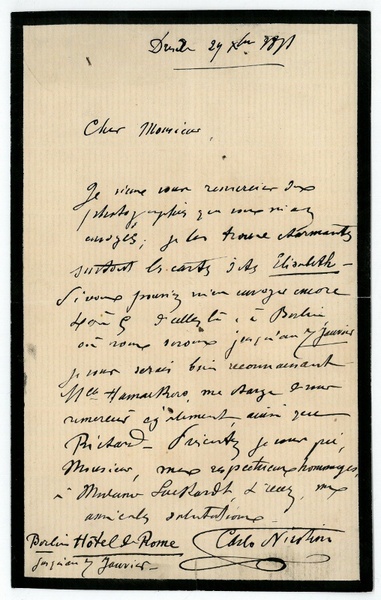 Dresde 29 Xbre 1871
Cher Monsieur,
Je viens vous remercier des
photographies que vous m'avez
envoyés; je les trouve charmantes
surtout les cartes d'ités Elisabeth -
Si vous pouviez m'en envoyer encore
4 ou 5 d'elles là, à Berlin
où nous serons jusqu'au 7 Janvier
je vous serais bien reconnaissant
me charge de vous
remercier également, ainsi que
Richard. Présentez je vous prie,
Monsieur, mes respectueux hommages
à Madame et mes
amicales salutations
Berlin Hôtel de Rome
Carlo Nicotini
jusqu'au 7 Janvier -